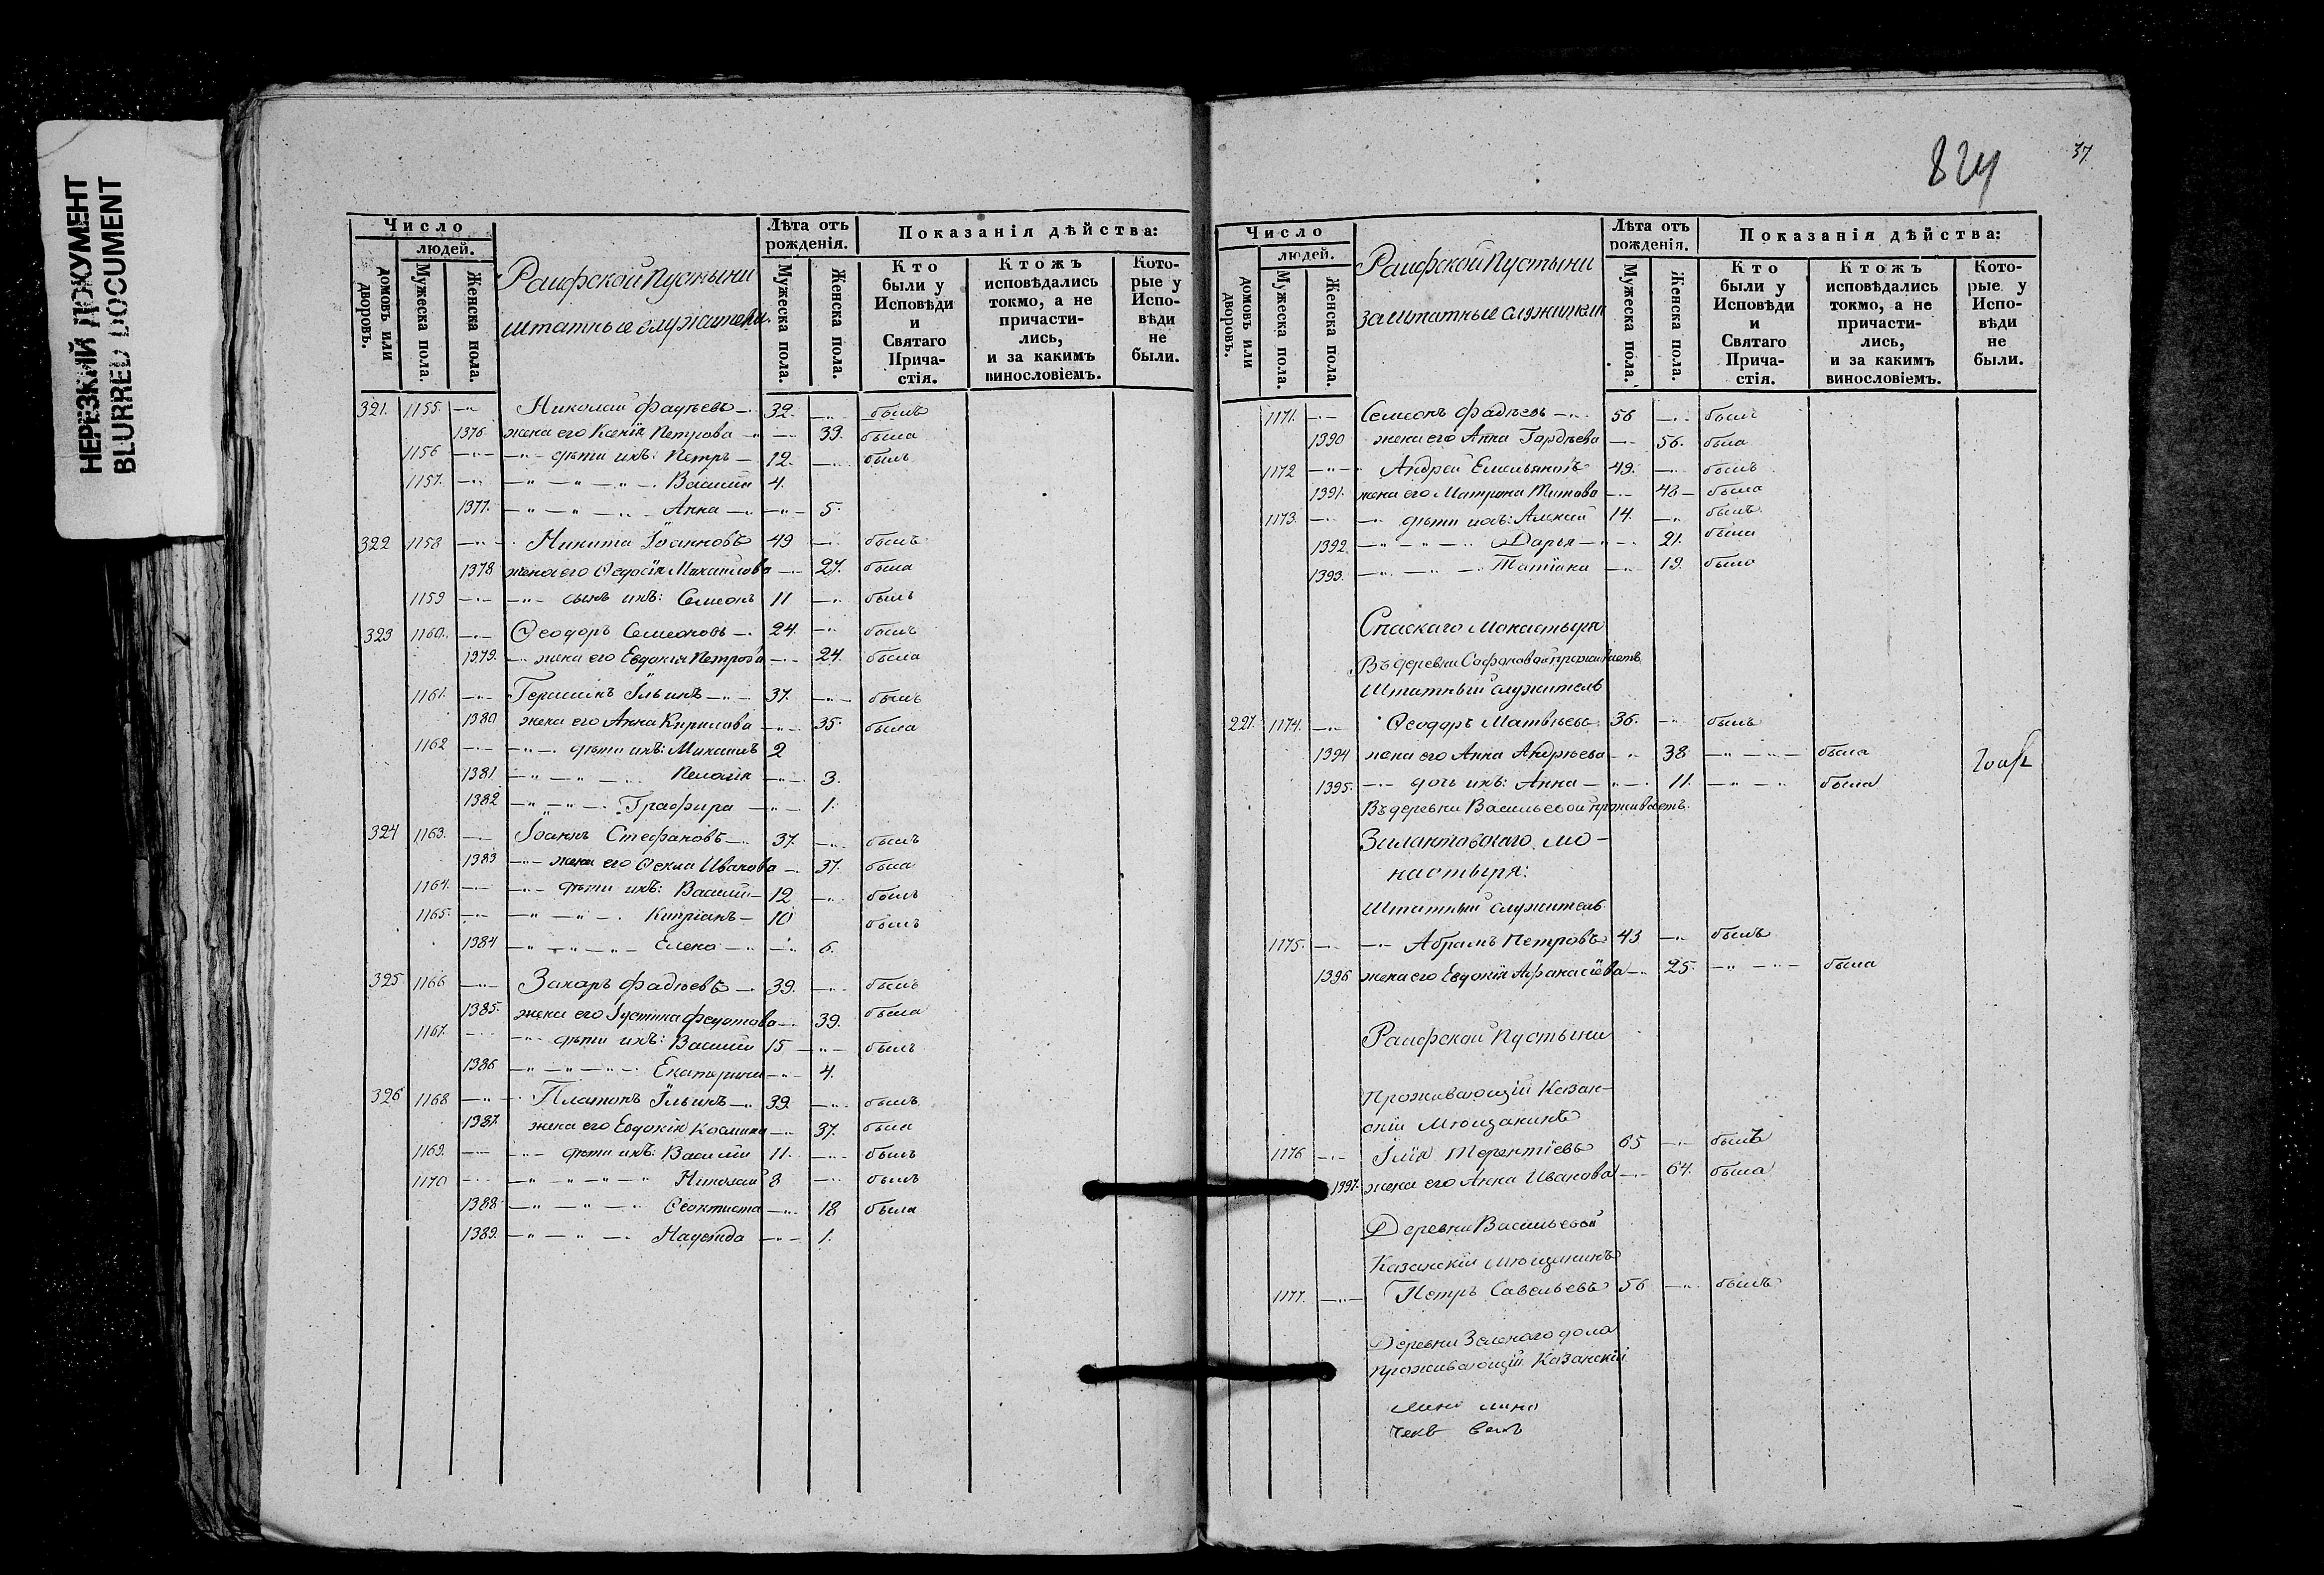 НЕРЕЗКИЙ ДОКУМЕНТ
BLURRED DOCUMENT
Число
людей.
домовъ или дворовъ.
Мужеска пола.
Женска пола.
Раифской Пустыни
штатные служители.
Лѣта отъ рожденія.
Мужеска пола.
Женска пола.
Показанія дѣйства:
Кто были у Исповѣди и Святаго Прича- стія.
Ктожъ исповѣдались токмо, а не причасти- лись, и за какимъ винословіемъ.
Кото- рые у Испо- вѣди не были.
321. 1155. —„— Николай Фадѣевъ —„ 32. —„— былъ
1376 жена его Ксенія Петрова —„— 33. была
1156 —„— —„— дѣти ихъ: Петръ — 12. —„— былъ
1157. —„— —„—„—„— Василій 4.
1377. —„—„—„— Анна —„ —„— 5.
322 1158 —„— Никита Іоанновъ 49 —„— былъ
1378 жена его Ѳедосія Михаилова —„— 27. была
1159 —„— —„— сынъ ихъ: Семеонъ 11 —„— былъ
323 1160. —„— Ѳеодоръ Семеоновъ —„ 24. —„— былъ
1379. —„— жена его Евдокія Петрова —„— 24. была
1161. —„— Герасимъ Ильинъ —„— 37. —„— былъ
1380 жена его Анна Кирилова —„— 35. была
1162 —„— —„— дѣти ихъ: Михаилъ 2
1381. —„—„—„— Пелагія —„— 3.
1382 —„—„— Графира —„— 1.
324 1163. —„— Іоаннъ Стефановъ —„ 37. —„— былъ
1383 —„— жена его Ѳекла Иванова —„ 37. была
1164. —„— —„— дѣти ихъ: Василій — 12 —„— былъ
1165. —„— —„—„— Кипріанъ — 10 былъ
1384 —„—„—„— Елена —„ —„— 6.
325 1166 —„— Захаръ Фадѣевъ —„ 39. —„— былъ
1385. жена его Іустина Федотова —„ 39. была
1167. —„— —„— дѣти ихъ: Василій 15 —„— былъ
1386 —„—„—„— Екатерина —„— 4.
326 1168 —„— Платонъ Ильинъ —„ 39 —„— былъ
1387. жена его Евдокія Космина —„— 37. была
1169. —„— —„— дѣти ихъ: Василій 11. —„— былъ
1170 —„— —„—„—„— Николай 8 —„— былъ
1388. —„—„—„— Ѳеоктиста —„— 18 была
1389. —„—„— Надежда —„— 1.
824
37.
Число
людей.
домовъ или дворовъ.
Мужеска пола.
Женска пола.
Раифской Пустыни
заштатные служители
Лѣта отъ рожденія.
Мужеска пола.
Женска пола.
Показанія дѣйства:
Кто были у Исповѣди и Святаго Прича- стія.
Ктожъ исповѣдались токмо, а не причасти- лись, и за какимъ винословіемъ.
Кото- рые у Испо- вѣди не были.
1171. —„— Семеонъ Фадѣевъ —„— 56 —„— былъ
1390 жена его Анна Гордѣева —„— 56. была
1172 —„— Андрей Емельяновъ 49. —„— былъ
1391. жена его Матрона Титова —„— 48 — была
1173. —„— —„— дѣти ихъ: Алексій 14. —„— былъ
1392. —„—„—„— Дарья —„—„ 21. была
1393. —„—„—„— Татіана —„— 19. была
Спаскаго Монастыря
Въ деревни Сафоновой проживаетъ
Штатный служитель
221. 1174. —„— Ѳеодоръ Матвѣевъ 36. —„— былъ
1394 жена его Анна Андрѣева —„— 38 —„—„— была
1395. —„— дочь ихъ: Анна —„—„ 11. —„—„ была
Въ деревни Васильевой проживаетъ.
Зилантовскаго мо-
настыря:
Штатный служитель
1175. —„— —„— Абрамъ Петровъ 43 —„— былъ
1396 жена его Евдокія Афанасіева —„ 25. —„—„— была
Раифской Пустыни
Проживающій Казан-
скій Мѣщанинъ
1176 —„— Илія Терентіевъ 65 —„— былъ
1397. жена его Анна Иванова —„— 64. была
Деревни Васильевой
Казанскій Мѣщанинъ
1177. —„— Петръ Савельевъ 56 —„— былъ
Деревни Зеленаго дола
проживающій Казанскій